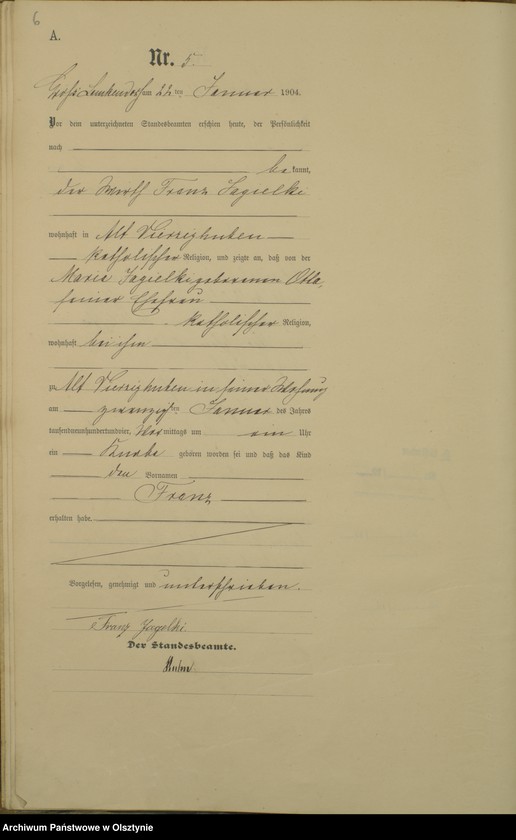 6
A.
Nr. 5.
Groß Lemkendorf am 22 ten Januar 1904.
Vor dem unterzeichneten Standesbeamten erschien heute, der Persönlichkeit
nach
be kannt,
der Wirth Franz Jagielki
wohnhaft in Alt Vierzighuben
katholischer Religion, und zeigte an, daß von der
Maria Jagielki geborenen Otta,
seiner Ehefrau
katholischer Religion,
wohnhaft bei ihm
zu Alt Vierzighuben in seiner Wohnung
am zwanzigsten Januar des Jahres
tausendneunhundertundvier, Vor mittags um ein Uhr
ein Knabe geboren worden sei und daß das Kind
den Vornamen
Franz
erhalten habe.
Vorgelesen, genehmigt und unterschrieben.
Franz Jagelki
Der Standesbeamte.
Archiwum Państwowe w Olsztynie